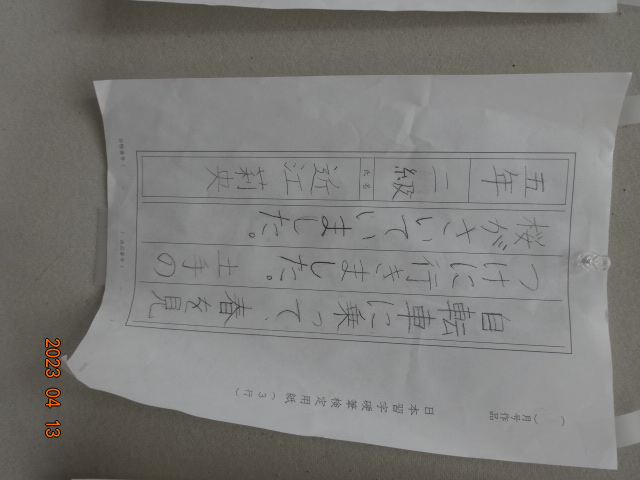 ( )月号作品
日本習字硬筆検定用紙(3行)
自転車に乗って、春を見
つけに行きました。土手の
桜がさいていました。
五年
二級
氏名
近江莉央
2023 04 13